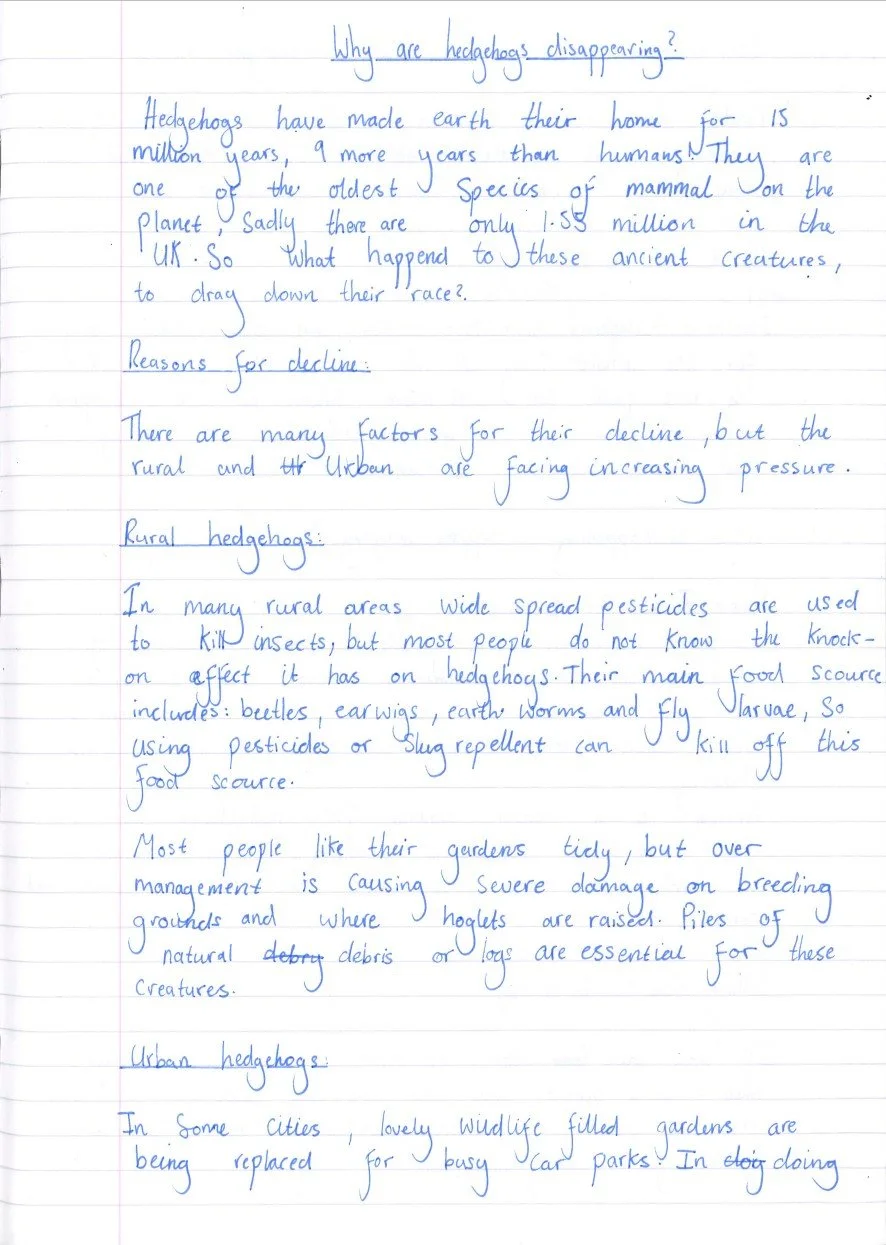 Why are hedgehogs disappearing?
Hedgehogs have made earth their home for 15
million years, 9 more years than humans! They are
one of the oldest Species of mammal on the
planet, Sadly there are only 1.55 million in the
UK. So what happend to these ancient creatures,
to drag down their race?.
Reasons for decline:
There are many factors for their decline, but the
rural and Urban are facing increasing pressure.
Rural hedgehogs:
In many rural areas wide spread pesticides are used
to kill insects, but most people do not know the knock-
on affect it has on hedgehogs. Their main food scource
includes: beetles, earwigs, earth worms and fly larvae, So
using pesticides or Slug repellent can kill off this
food scource.
Most people like their gardens tidy, but over
management is causing severe damage on breeding
grounds and where hoglets are raised. Piles of
natural debry debris or logs are essential for these
Creatures.
Urban hedgehogs:
In Some cities, lovely wildlife filled gardens are
being replaced for busy car parks. In doing